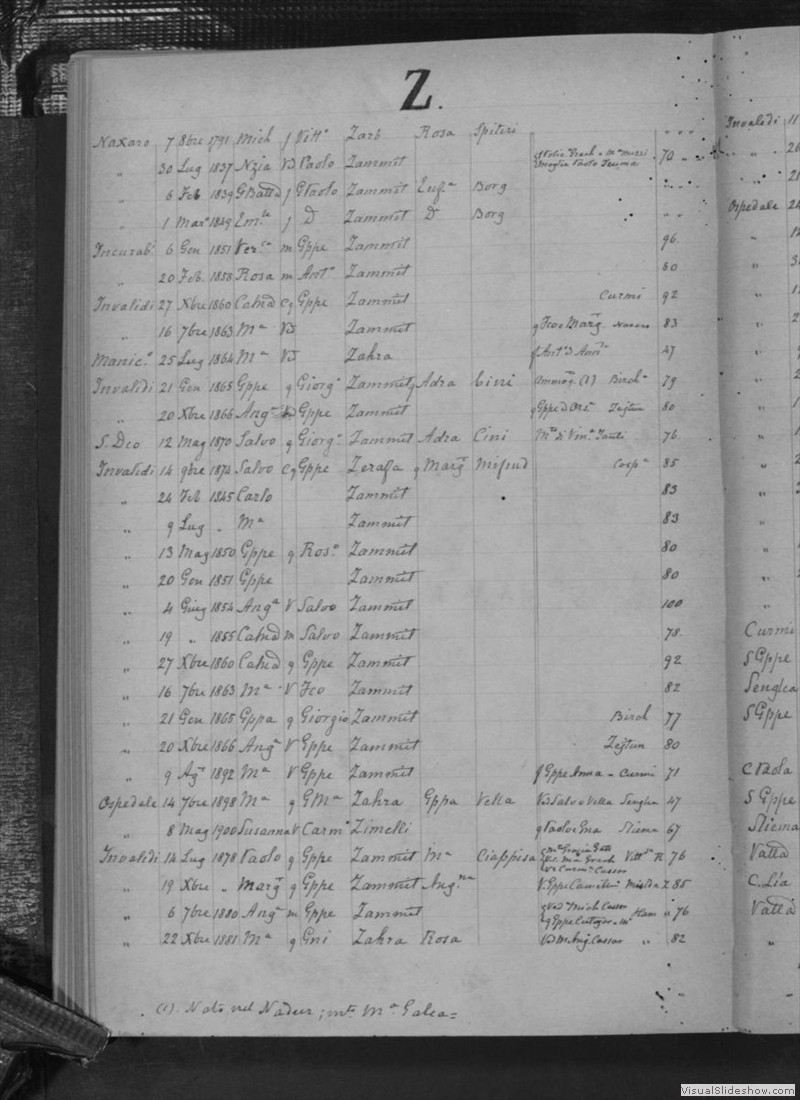 Z.
Naxaro 7 8bre 1791 Mich f Vitto Zarb Rosa Spiteri
„ 30 Lug 1837 Nzia Vd Paolo Zammit 70
„ 6 Feb 1839 GBatta f GPaolo Zammit Eufa Borg
„ 1 Maro 1849 f D Zammit D Borg
Incurabi 6 Gen 1851 m Gppe Zammit 96.
20 Feb. 1858 Rosa m Anto Zammit 80
Invalidi 27 Xbre 1860 Catnd cg Gppe Zammit Curmi 92
„ 16 7bre 1863 Ma Vd Zammit g Fco e Marg Naxaro 83
Manico 25 Lug 1864 Ma Vd Zahra 47
Invalidi 21 Gen 1865 Gppe g Giorgo Zammit Adra (1) Birch 79
„ 20 Xbre 1866 Anga Gppe Zammit Zejtun 80
S. Dco 12 Mag 1870 Salvo g Giorgo Zammit Adra Cini 76
Invalidi 14 9bre 1874 Salvo cg Gppe Zerafa g Marg Mifsud Cospa 85
„ 24 Feb 1845 Carlo Zammit 83
„ 9 Lug „ Ma Zammit 83
„ 13 Mag 1850 Gppe g Roso Zammit 80
„ 20 Gen 1851 Gppe Zammit 80
„ 4 Giug 1854 Anga V Salvo Zammit 100
„ 19 „ 1855 Catnd m Salvo Zammit 78.
„ 27 Xbre 1860 Catnd g Gppe Zammit 92
„ 16 7bre 1863 Ma V Fco Zammit 82
„ 21 Gen 1865 Gppa g Giorgio Zammit Birch 77
„ 20 Xbre 1866 Anga V Gppe Zammit Zejtun 80
„ 9 Ago 1892 Ma V Gppe Zammit f Gppe Anna - Curmi 71
Ospedale 14 7bre 1898 Ma g GMa Zahra Gppa Vella Vd Salvo Vella Senglea 47
„ 8 Mag 1900 Susanna V Carmo Zimelli g Paolo e Gna Sliema 67
Invalidi 14 Lug 1878 Paolo g Gppe Zammit Ma Ciappisa 76
„ 19 Xbre „ Marg g Gppe Zammit V. Gppe Camilleri Misida 85
„ 6 7bre 1880 Anga m Gppe Zammit Ham 76
„ 22 Xbre 1881 Ma g Gni Zahra Rosa Vd M Ang Cassar „ 82
(1). Nato nel Nadur; mto Ma Galea=
Invalidi 11
26
21
Ospedale 24
Curmi
S Gppe
Senglea
S Gppe
C Paola
S Gppe
Sliema
Vatta
C. Lia
Vatta
VisualSlideshow.com